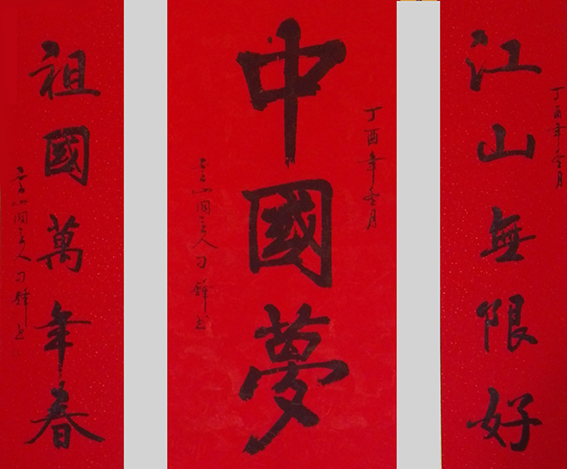 江山無限好
丁酉年冬月
中國夢
丁酉年冬月
祖國萬年春